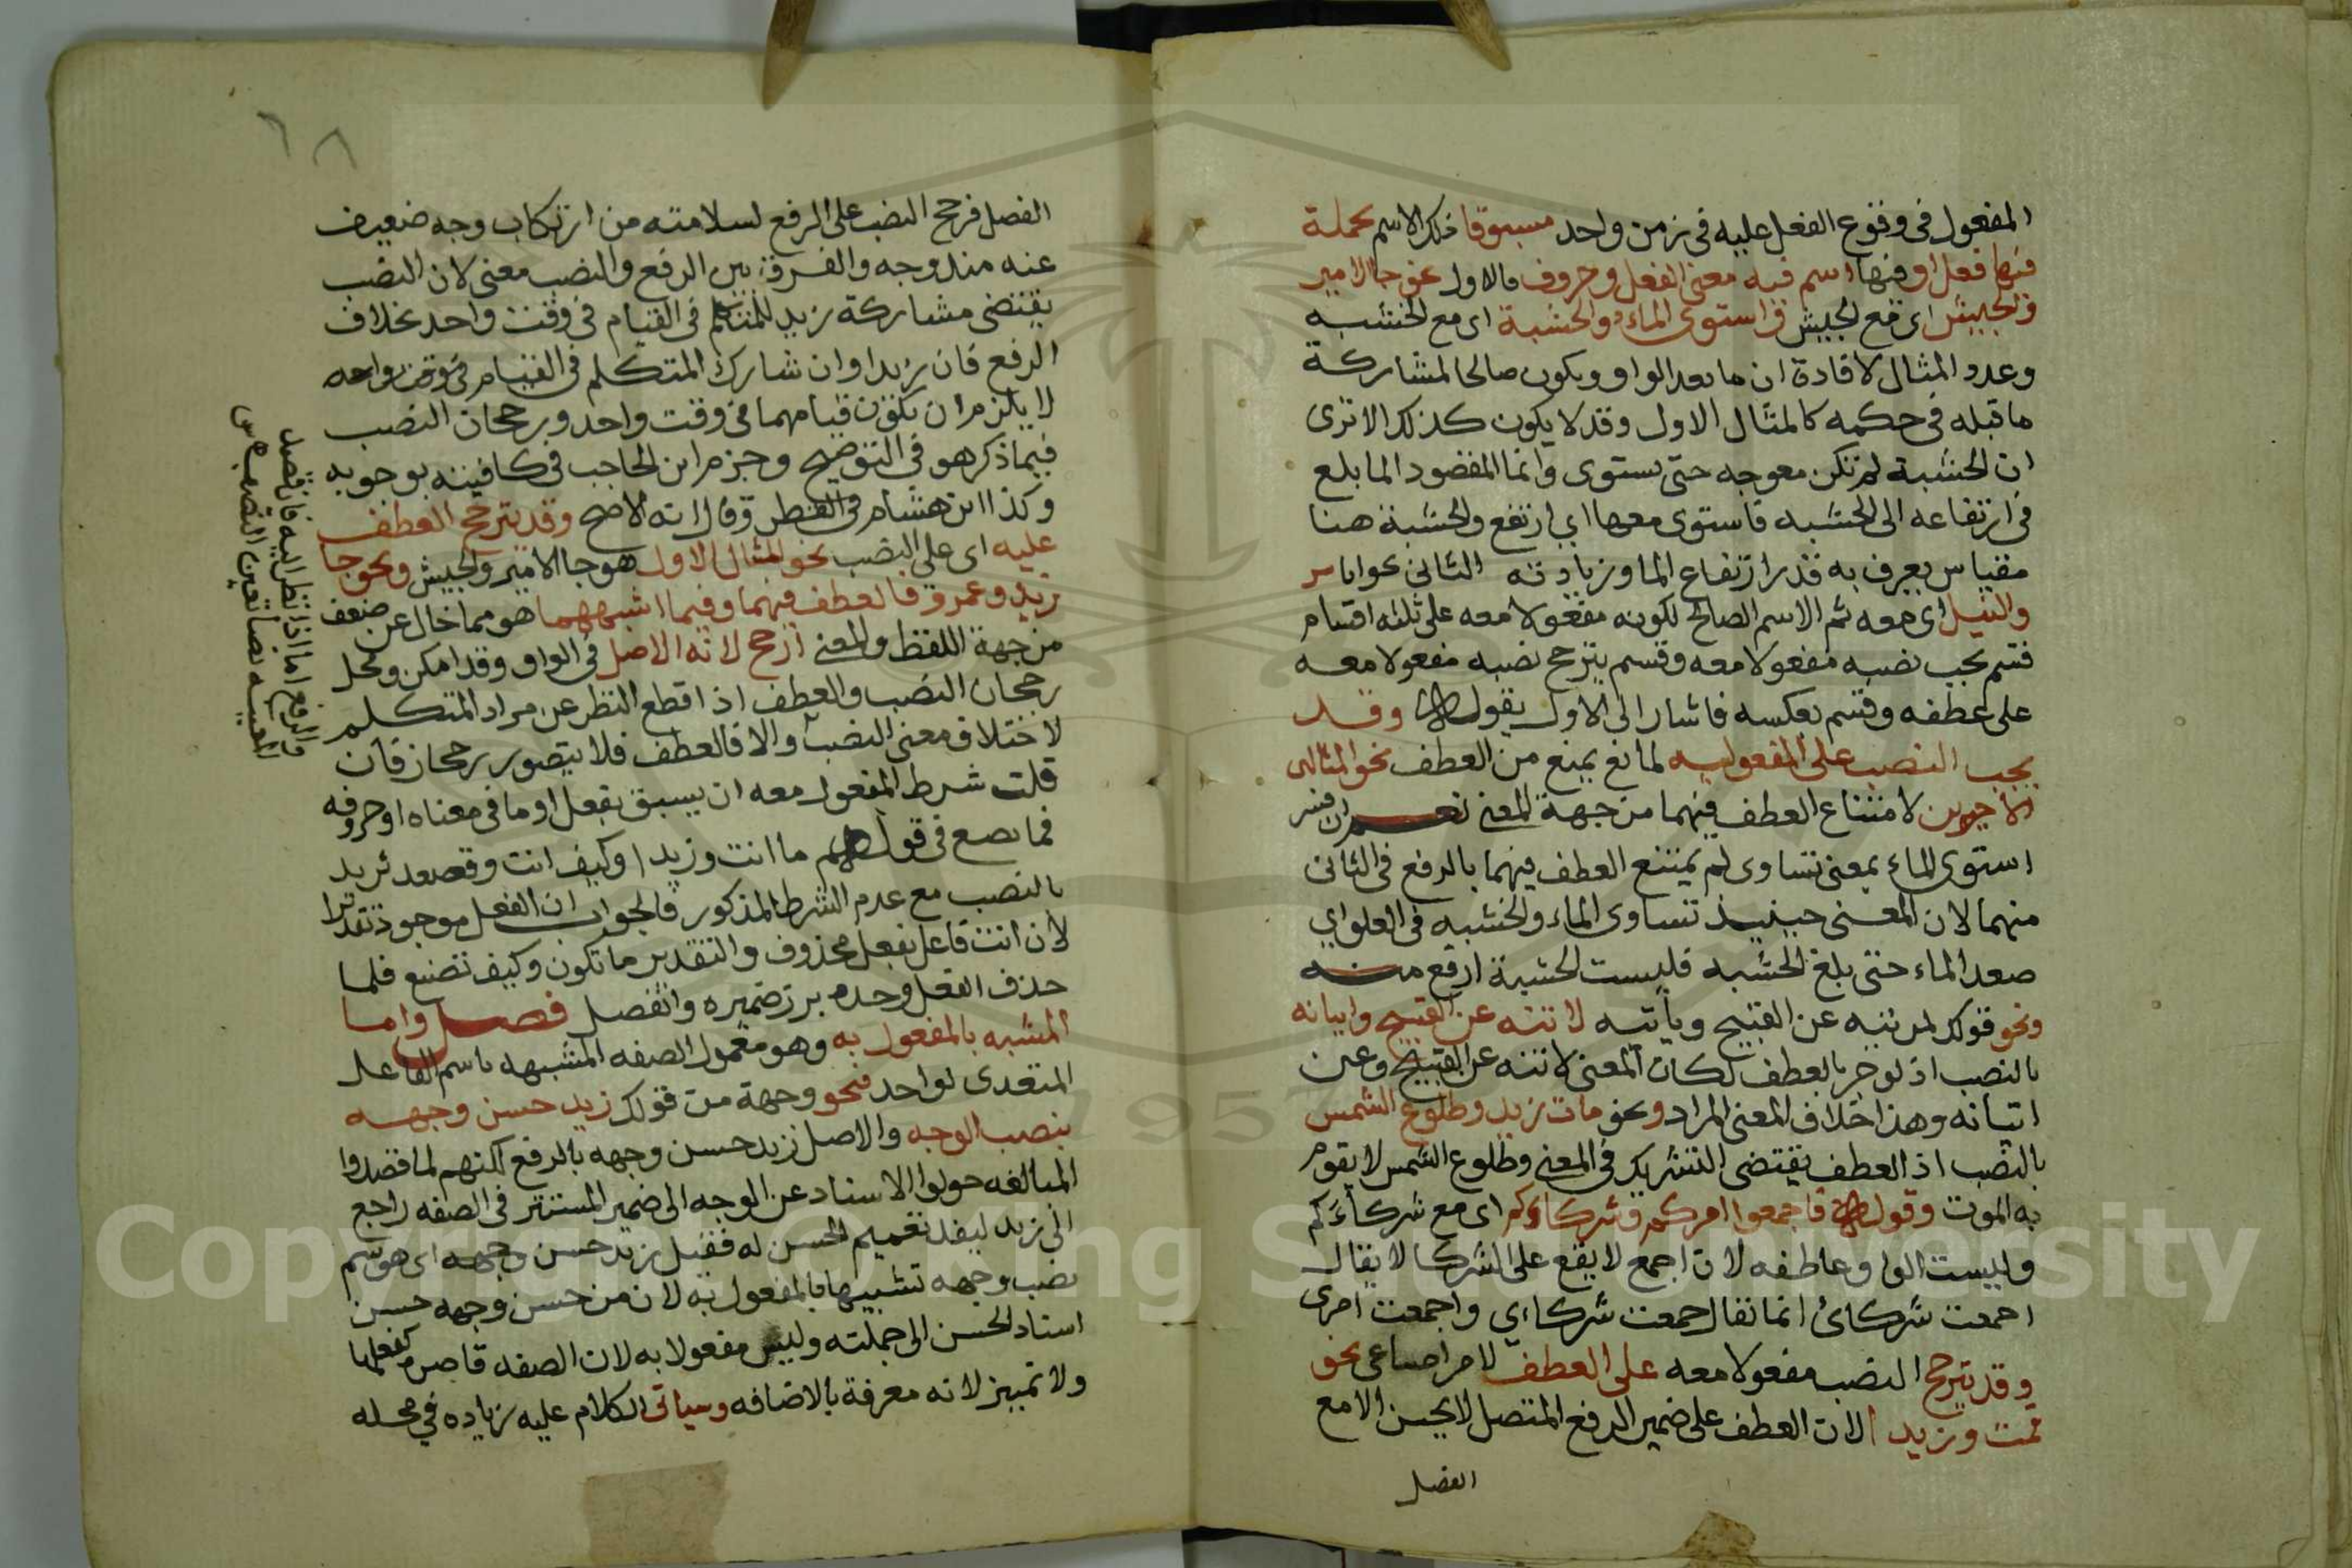 المفعول في وقوع الفعل عليه في زمن واحد مسبوقا ذلك الاسم بجملة
فيها فعل او فيها اسم فيه معنى الفعل وحروفه فالاول نحو جا الامير
والجيش اى مع الجيش واستوى الماء والخشبة اى مع الخشبه
وعدد المثال لافادة ان ما بعد الواو ويكون صالحا لمشاركة
ما قبله في حكمه كالمثال الاول وقد لا يكون كذلك الا ترى
ان الخشبة لم تكن معوجه حتى يستوى وانما المقصود الما بلغ
في ارتفاعه الى الخشبه فاستوى معها اي ارتفع والخشبة هنا
مقياس يعرف به قدر ارتفاع الما وزيادته الثانى نحو انا سر
والنيل اى معه ثم الاسم الصالح لكونه مفعولا معه على ثلثه اقسام
قسم يجب نصبه مفعولا معه وقسم يترجح نصبه مفعولا معه
على عطفه وقسم بعكسه فاشار الى الاول بقوله وقد
يجب النصب على المفعوليه لمانع يمنع من العطف نحو المثالين
الاخيرين لامتناع العطف فيهما من جهة المعنى نعم ان فسر
استوى الماء بمعنى تساوى لم يمتنع العطف فيهما بالرفع في الثانى
منهما لان المعنى حينيذ تساوى الماء والخشبه في العلو اي
صعد الماء حتى بلغ الخشبه فليست الخشبة ارفع منه
ونحو قولك لمن ينهى عن القبيح وياتيه لا تنه عن القبيح واتيانه
بالنصب اذ لو جر بالعطف لكان المعنى لا تنه عن القبيح وعن
اتيانه وهذا خلاف المعنى المراد ونحو مات زيد وطلوع الشمس
بالنصب اذ العطف يقتضى التشريك في المعنى وطلوع الشمس لا يقوم
به الموت وقوله فاجمعوا امركم وشركاءكم اى مع شركاءكم
وليست الواو عاطفه لان اجمع لا يقع على الشركا لا يقال
اجمعت شركائ انما تقال جمعت شركاءي واجمعت امرى
وقد يترجح النصب مفعولا معه على العطف لامر صناعى نحو
قمت وزيدا لان العطف على ضمير الرفع المتصل لا يحسن الا مع
الفصل
الفصل فرجح النصب على الرفع لسلامته من ارتكاب وجه ضعيف
عنه مندوجه والفرق بين الرفع والنصب معنى لان النصب
يقتضى مشاركة زيد للمتكلم في القيام في وقت واحد بخلاف
الرفع فان زيدا وان شارك المتكلم في القيام في وقت واحد
لا يلزم ان يكون قيامهما في وقت واحد ورجحان النصب
فيما ذكر هو في التوضيح وجزم ابن الحاجب في كافيته بوجوبه
وكذا ابن هشام في القطر وقال انه الاصح وقد يترجح العطف
عليه اى على النصب نحو المثال الاول هو جا الامير والجيش ونحو جا
زيد وعمرو فالعطف فيهما وفيما اشبههما هو مما خال عن ضعف
من جهة اللفظ والمعنى ارجح لانه الاصل في الواو وقد امكن ومحل
رجحان النصب والعطف اذا قطع النظر عن مراد المتكلم
لاختلاف معنى النصب والا فالعطف فلا يتصور رجحان فان
قلت شرط المفعول معه ان يسبق بفعل او ما في معناه وحروفه
فما تصنع في قولهم ما انت وزيدا وكيف انت وقصعه ثريد
بالنصب مع عدم الشرط المذكور فالجواب ان الفعل موجود تقديرا
لان انت فاعل بفعل محذوف والتقدير ما تكون وكيف تصنع فلما
حذف الفعل وحده برز ضميره وانفصل فصل واما
المشبه بالمفعول به وهو معمول الصفه المشبهه باسم الفاعل
المتعدى لواحد فنحو وجهة من قولك زيد حسن وجهه
بنصب الوجه والاصل زيد حسن وجهه بالرفع لكنهم لما قصدوا
المبالغه حولوا الاسناد عن الوجه الى ضمير المستتر في الصفه راجع
الى زيد ليفيد تعميم الحسن له فقيل زيد حسن وجهه اى هو ثم
نصب وجهه تشبيها بالمفعول به لان من حسن وجهه حسن
اسناد الحسن الى جملته وليس مفعولا به لان الصفه قاصر كفعلها
ولا تمييز لانه معرفة بالاضافه وسياتى الكلام عليه زياده في محله
والرفع اما اذا نظر اليه فان قصد
المعيه نصا تعين النصب
Copyright © King Saud University
1957